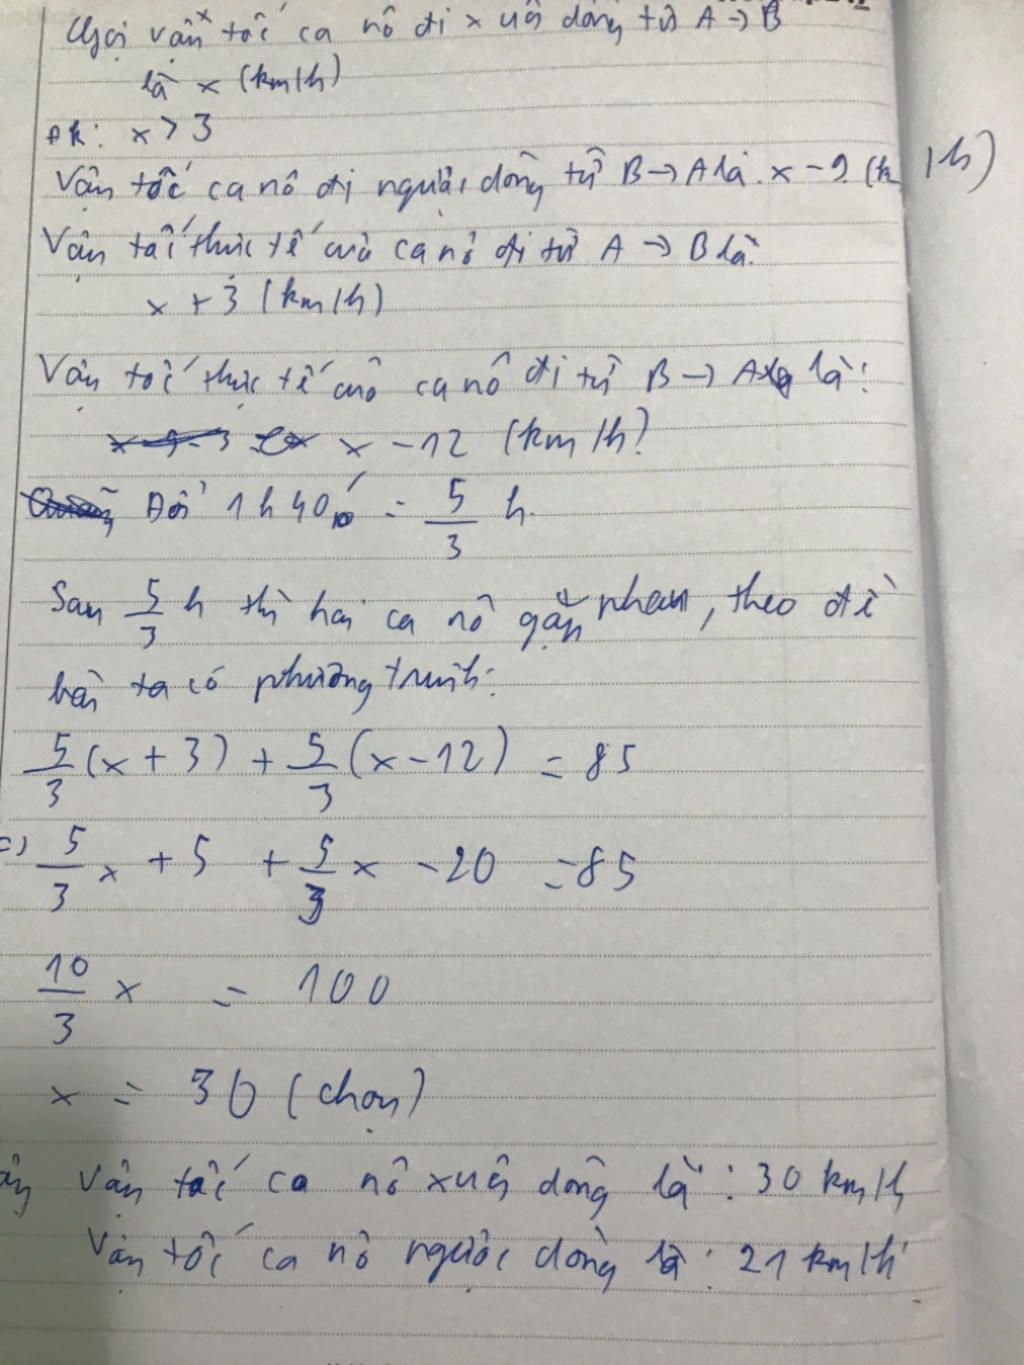 Gọi vận tốc ca nô đi xuôi dòng từ A → B
là x (km/h)
ĐK: x > 3
Vận tốc ca nô đi ngược dòng từ B → A là x - 9 (k /h)
Vận tốc thực tế của ca nô đi từ A → B là:
x + 3 (km/h)
Vận tốc thực tế của ca nô đi từ B → A là:
x - 12 (km/h)
Đổi 1h40' = 5/3 h.
Sau 5/3 h thì hai ca nô gặp nhau, theo đề
bài ta có phương trình:
5/3 (x + 3) + 5/3 (x - 12) = 85
5/3 x + 5 + 5/3 x - 20 = 85
10/3 x = 100
x = 30 (chọn)
vận tốc ca nô xuôi dòng là: 30 km/h
Vận tốc ca nô ngược dòng là: 21 km/h